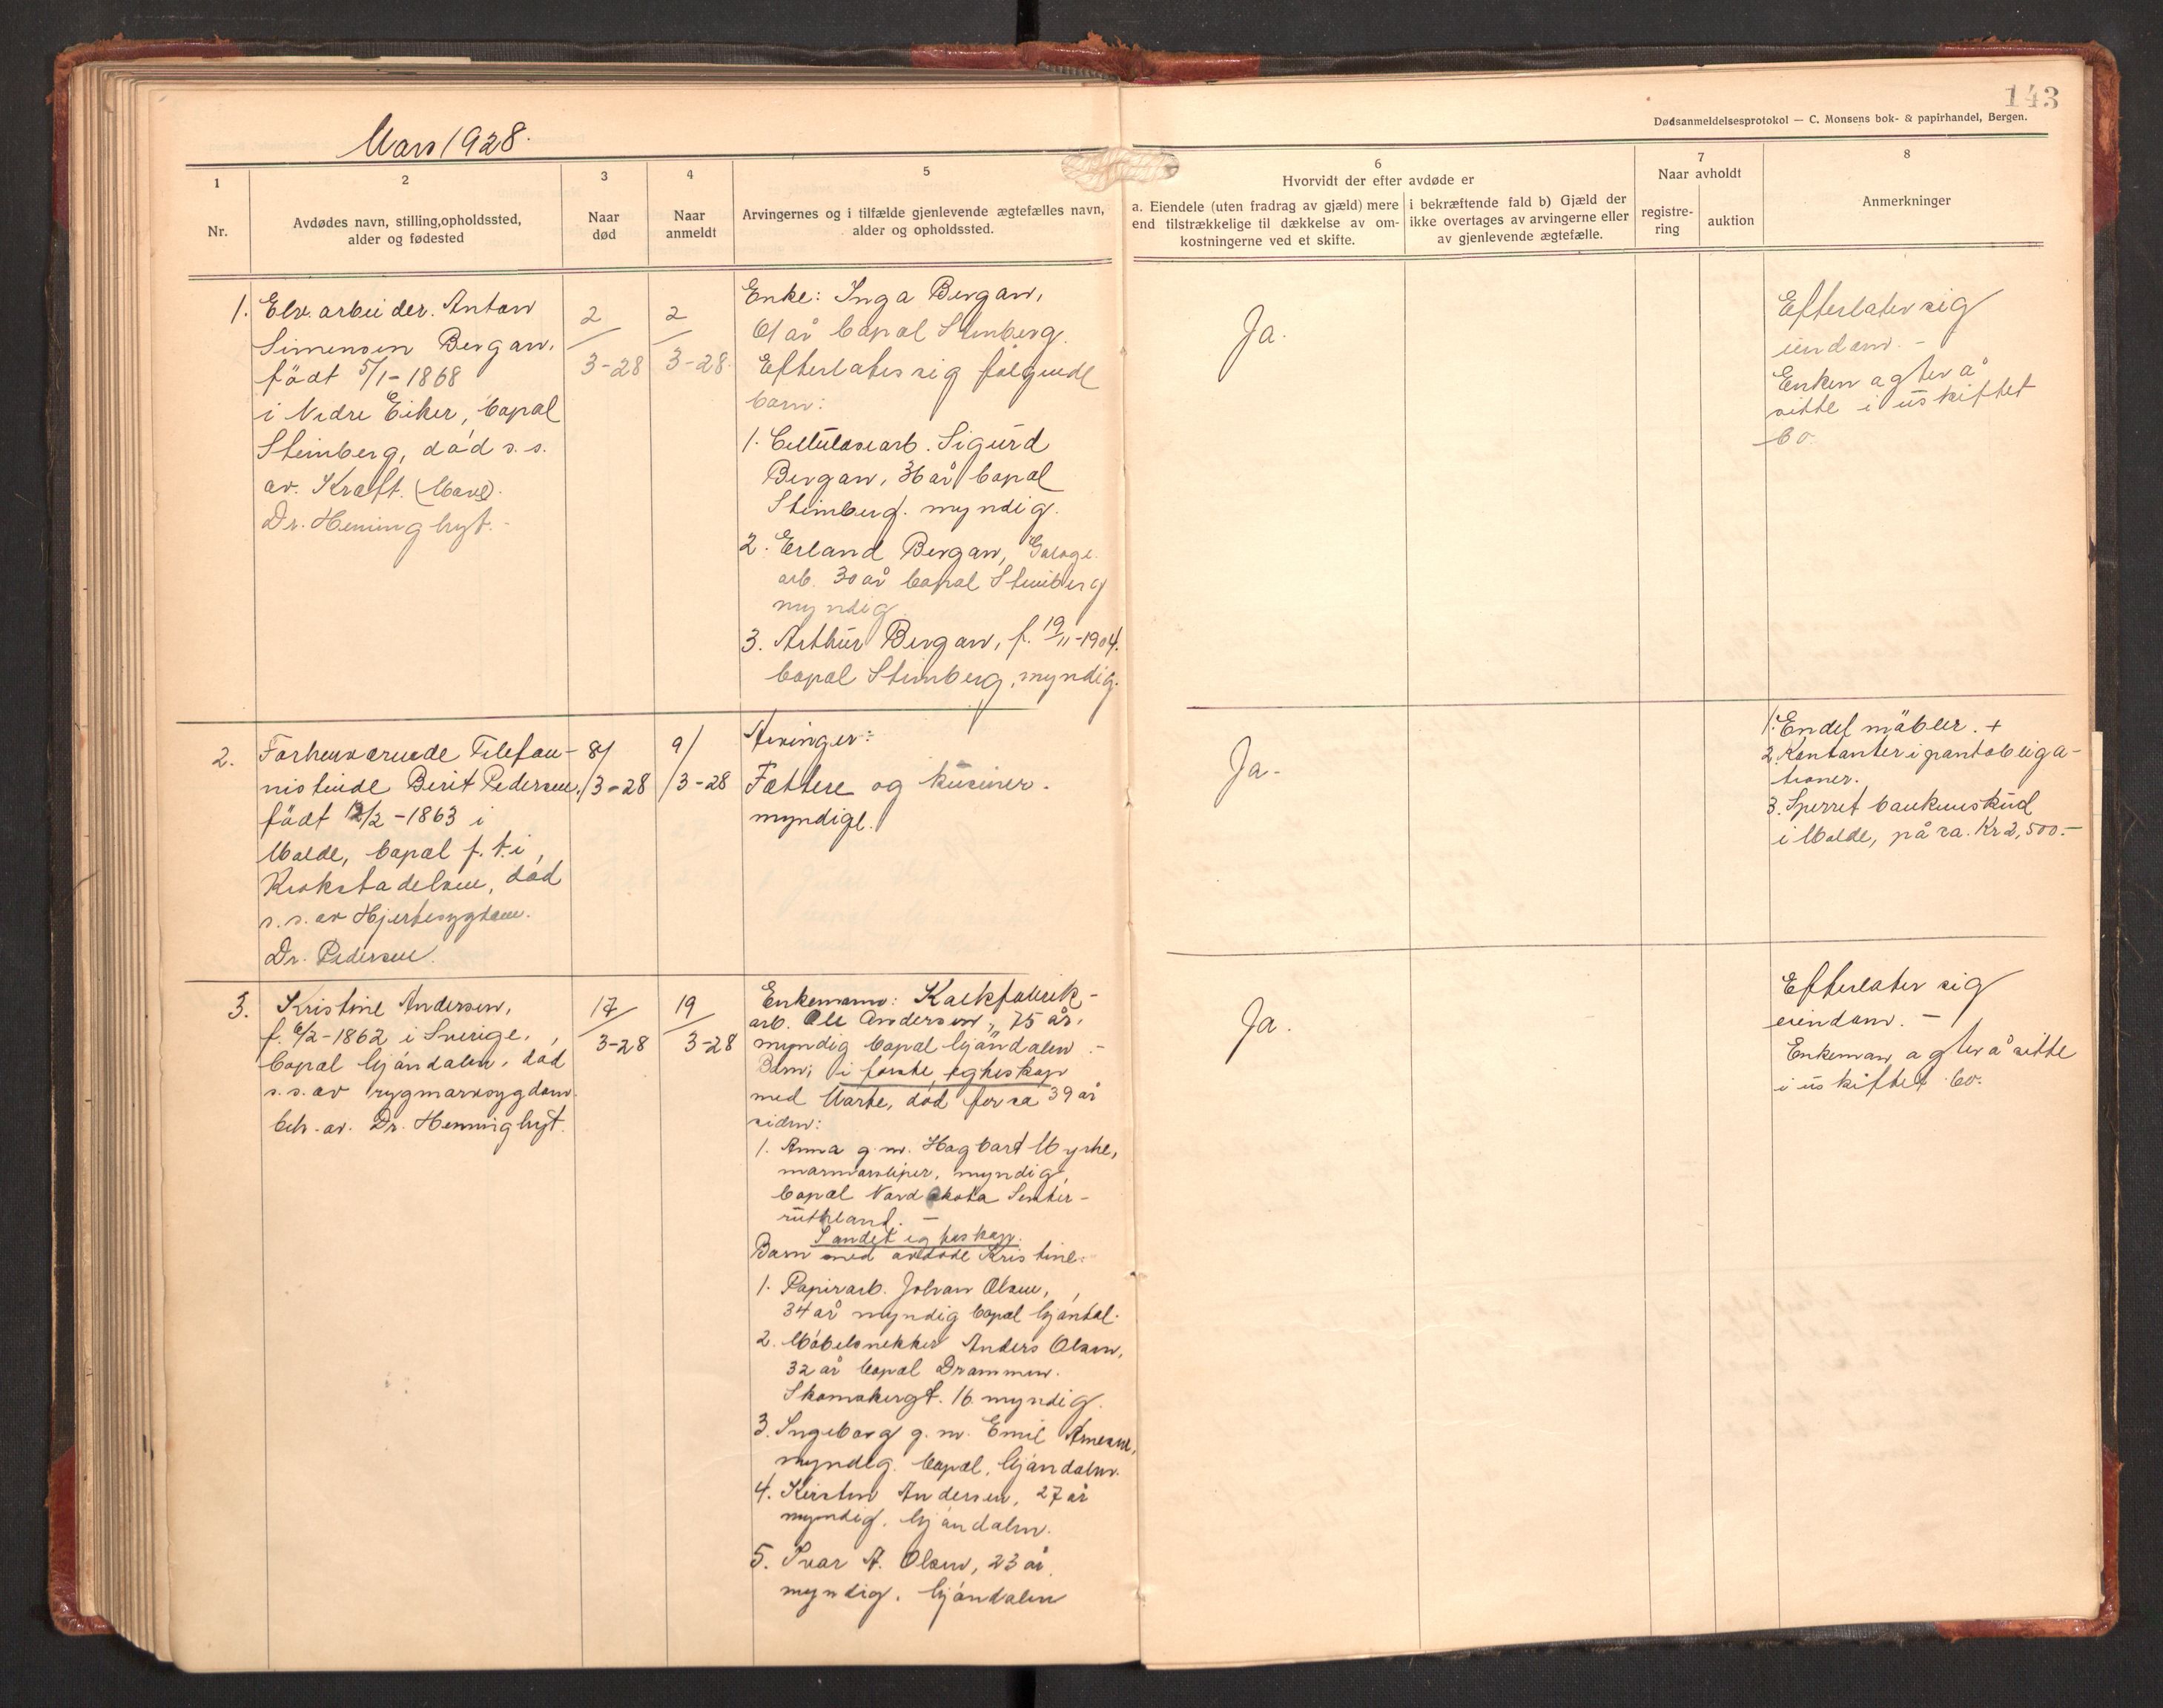 143
Dødsanmeldelsesprotokol — C. Monsens bok- & papirhandel, Bergen.
Mars 1928.
1
2
3
4
5
6
7
8
Nr.
Avdødes navn, stilling, opholdssted,
alder og fødested
Naar
død
Naar
anmeldt
Arvingernes og i tilfælde gjenlevende ægtefælles navn,
alder og opholdssted.
Hvorvidt der efter avdøde er
a. Eiendele (uten fradrag av gjæld) mere
end tilstrækkelige til dækkelse av om-
kostningerne ved et skifte.
i bekræftende fald b) Gjæld der
ikke overtages av arvingerne eller
av gjenlevende ægtefælle.
Naar avholdt
registre-
ring
auktion
Anmerkninger
1.
Elv. arbeider. Anton
Simensen Bergan,
født 5/1-1868
i Nedre Eiker, bopal
Steinberg, død s.s.
av. Kræft. (Mave).
Dr. Heninghyt.-
2/3-28
2/3-28.
Enke: Inga Bergan,
61 år bopal Steinberg.
Efterlates sig følgende
barn:
1. Cellulosearb. Sigurd
Bergan, 36 år bopal
Steinberg. myndig.
2. Erland Bergan,
arb. 30 år bopal Steinberg
myndig
3. Arthur Bergan, f. 19/11-1904.
bopal Steinberg, myndig.
Ja.
Efterlater sig
eiendom. -
Enken agter å
sitte i uskiftet
bo.
2.
Forhenværende Telefon-
nistinde Berit Pedersen,
født 12/2-1863 i
Molde, bopal f.t. i
Krokstadelven, død
s.s. av Hjertesygdom.
Dr. Pedersen.
8/3-28
9/3-28
Arvinger:
Fættere og kusiner.
myndige.
Ja-
1. Endel møbler. +
2. Kontanter i pantobliga-
tioner.
3. Sperret bankinskud
i Molde, på ca. Kr 2,500.-
3.
Kristine Andersen,
f. 6/2-1862 i Sverige,
bopal Mjøndalen, død
s.s. av rygmarvsygdom.
beh. av. Dr. Henninghyt.
17/3-28
19/3-28
Enkemann: Kalkfabrik-
arb. Ole Andersen, 75 år,
myndig bopal Mjøndalen.-
Barn; i første egteskap
med Marte, død for ca 39 år
siden:
1. Anna g.m. Hagbart Myrhe,
marmorsliper, myndig,
bopal Nord Dakota Senter-
rutheland. -
I andet egteskap.
Barn med avdøde Kristine:
1. Papirarb. Johan Olsen,
34 år myndig bopal Mjøndal.
2. Møbelsnekker Anders Olsen,
32 år bopal Drammen.
Skomakergt. 16 myndig.
3. Ingeborg g.m. Emil Arnesen,
myndig. bopal. Mjøndalen.
4. Kirsten Andersen, 27 år
myndig. Mjøndalen.
5. Ivar A. Olsen, 23 år.
myndig. Mjøndalen
Ja.
Efterlater sig
eiendom. -
Enkeman agter å sitte
i uskiftet bo.